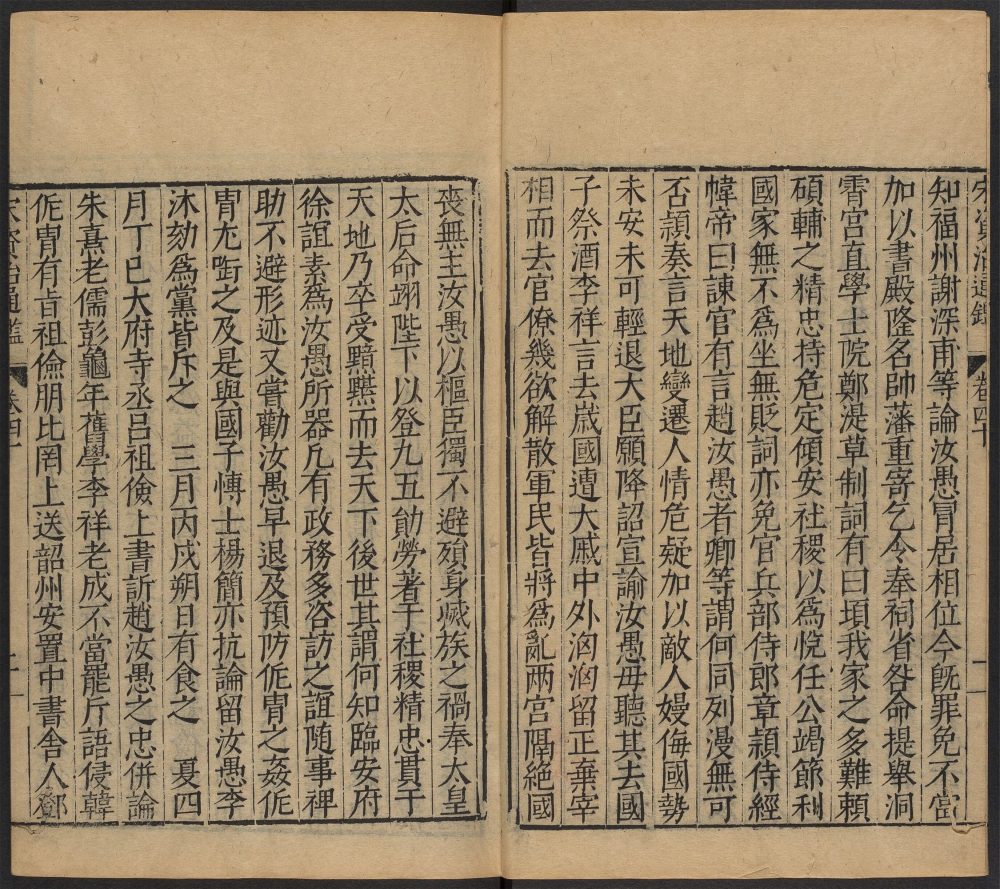 宋資治通鑑 卷四十
知福州謝深甫等論汝愚冒居相位今旣罪免不當
加以書殿隆名帥藩重寄乞令奉祠省咎命提舉洞
霄宮直學士院鄭湜草制詞有曰頃我家之多難頼
碩輔之精忠持危定傾安社稷以爲恱任公竭節利
國家無不爲坐無貶詞亦免官兵部侍郎章頴侍經
幃帝曰諫官有言趙汝愚者卿等謂何同列漫無可
否頴奏言天地變遷人情危疑加以敵人嫚侮國勢
未安未可輕退大臣願降詔宣諭汝愚毋聽其去國
子祭酒李祥言去歳國遭大戚中外洶洶留正棄宰
相而去官僚幾欲解散軍民皆將爲亂两宮隔絶國
喪無主汝愚以樞臣獨不避殞身滅族之禍奉太皇
太后命翊陛下以登九五勛勞著于社稷精忠貫于
天地乃卒受黯黮而去天下後世其謂何知臨安府
徐誼素爲汝愚所器凡有政務多咨訪之誼随事裨
助不避形迹又嘗勸汝愚早退及預防侂胄之姦侂
胄尤銜之及是與國子博士楊簡亦抗論留汝愚李
沐劾爲黨皆斥之 三月丙戍朔日有食之 夏四
月丁巳大府寺丞呂祖儉上書訢趙汝愚之忠併論
朱熹老儒彭龜年舊學李祥老成不當罷斥語侵韓
侂胄有旨祖儉朋比罔上送韶州安置中書舍人鄧
宋資治通鑑 卷四十